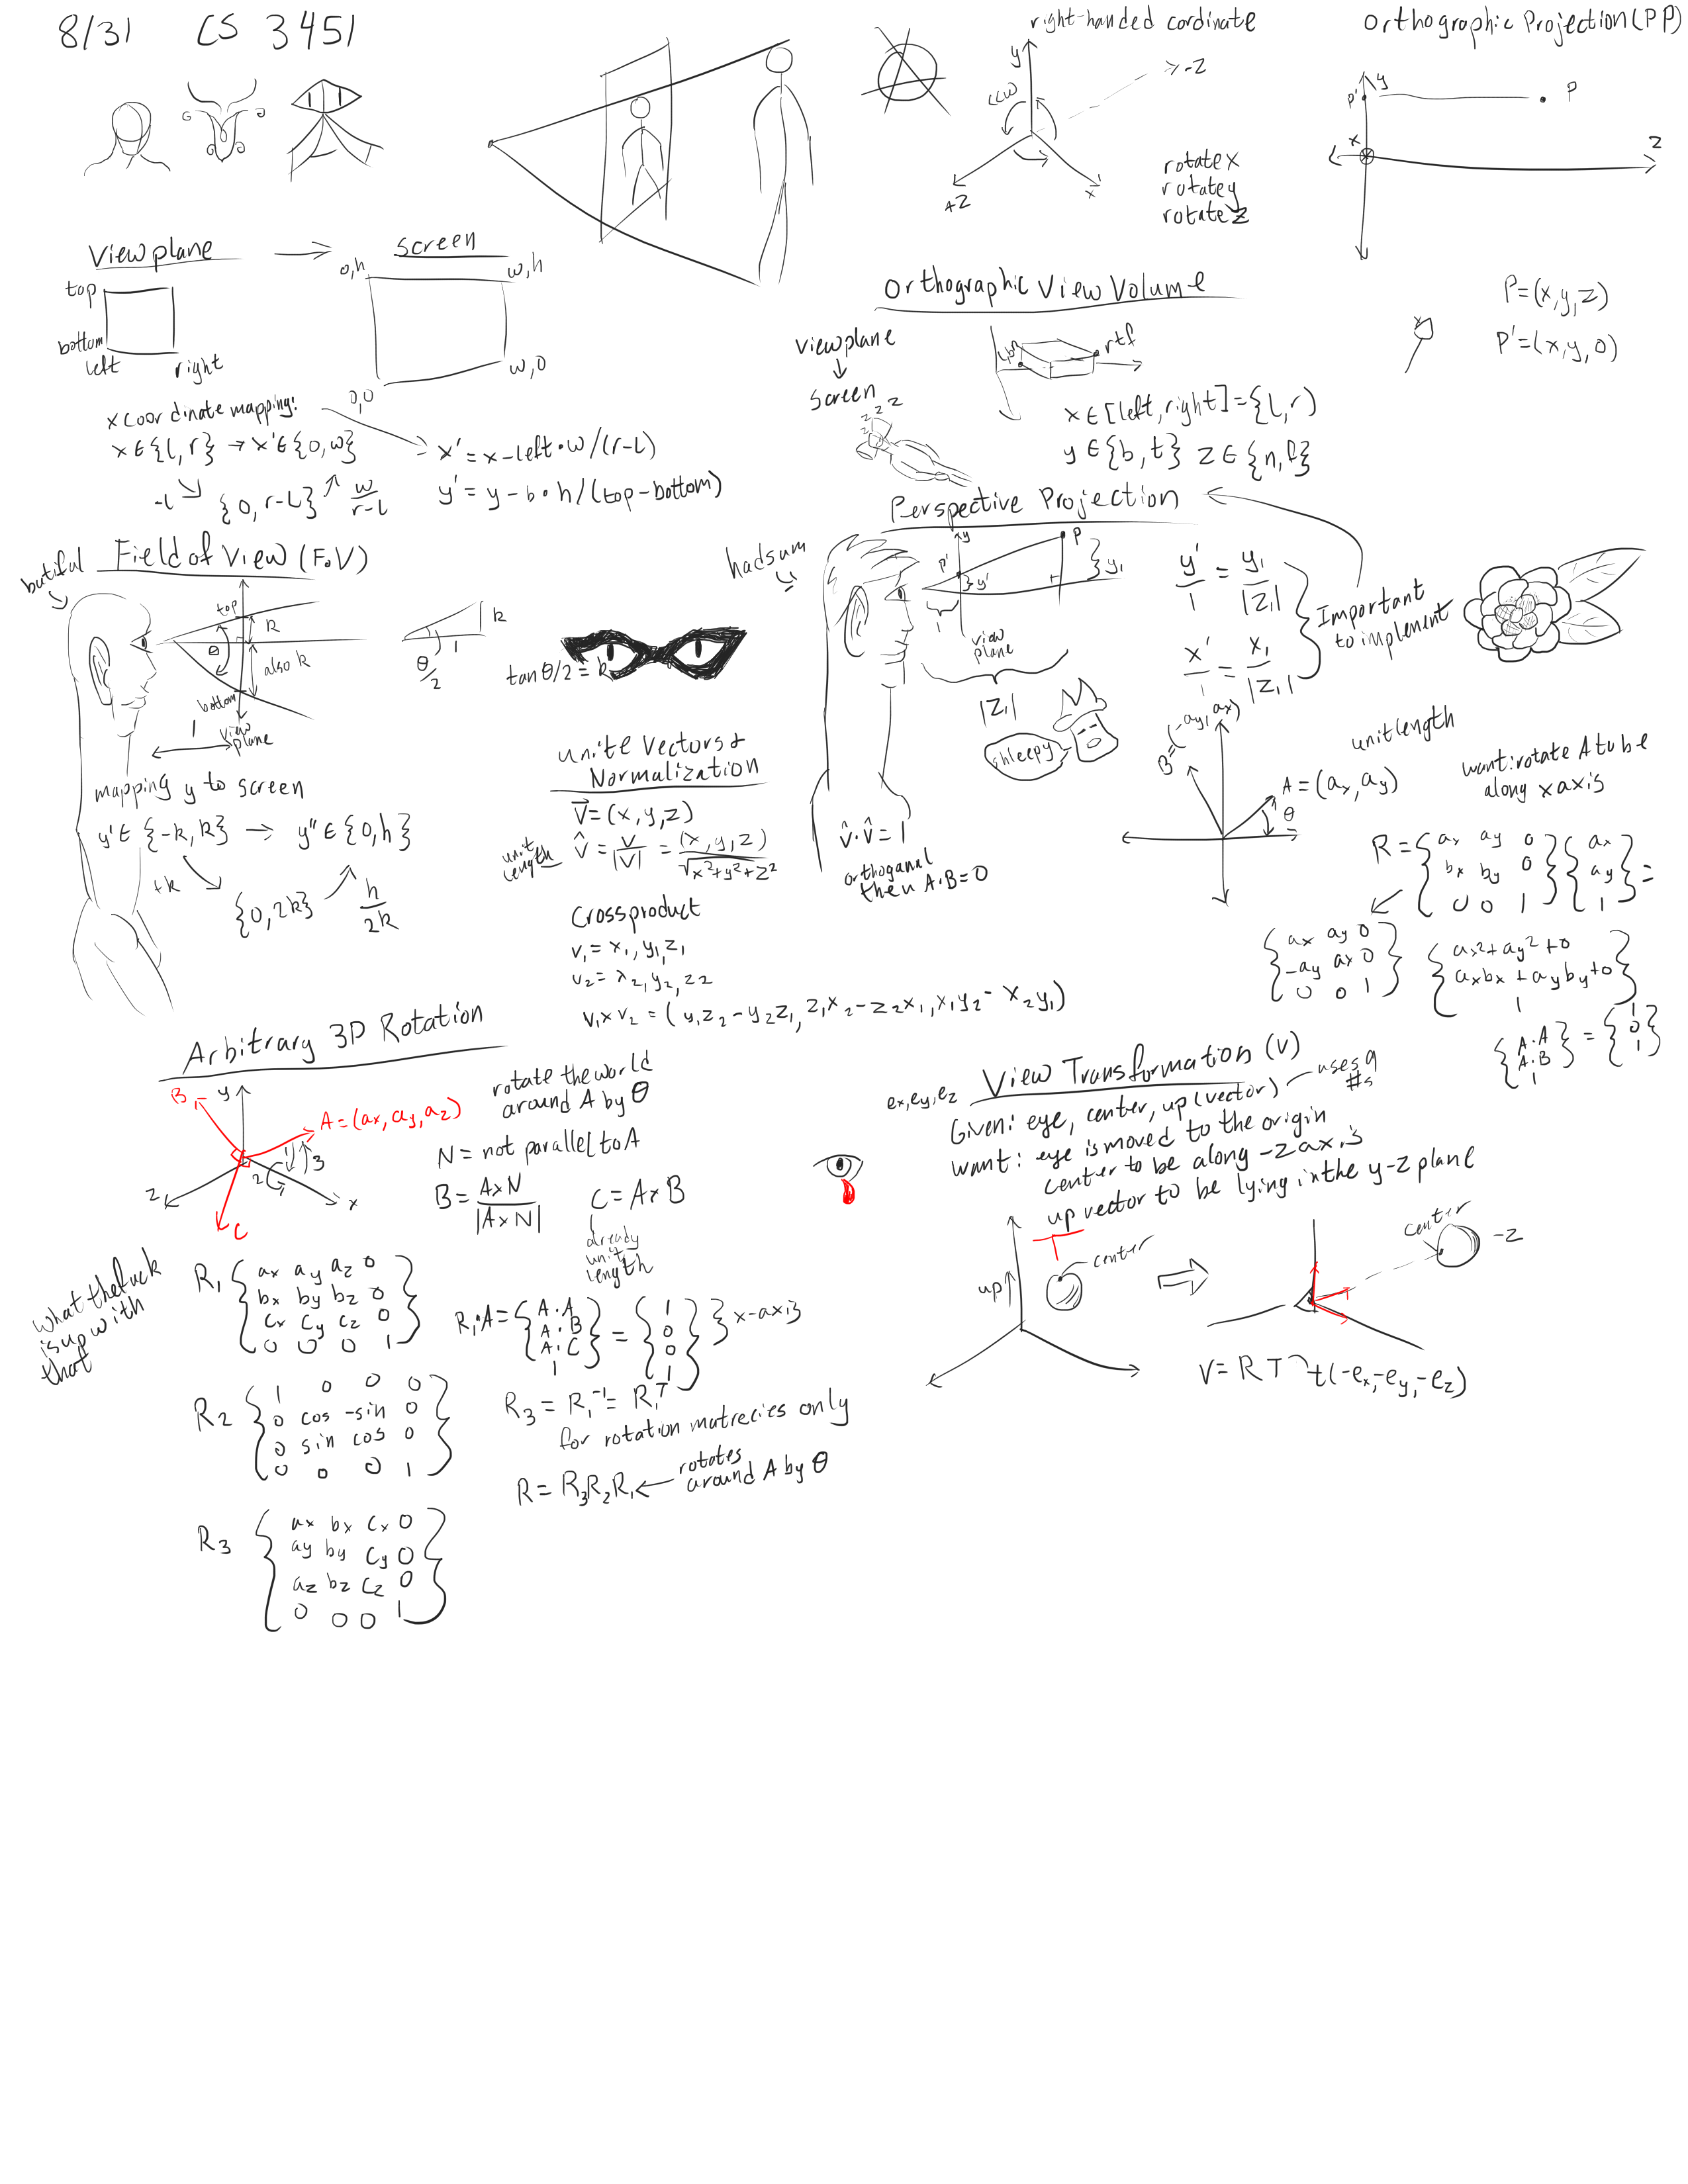 8/31 CS 3451
right-handed cordinate
y
→ -z
CCW
+z
x
rotate x
rotate y
rotate z
Orthographic Projection (PP)
y
P'
P
x
z
P=(x,y,z)
P'=(x,y,0)
View plane → screen
top
bottom
left
right
0,h
w,h
0,0
w,0
x coordinate mapping:
x∈{l,r} → x'∈{0,w}
-l {0,r-l} w/(r-l)
x' = x-left•w/(r-l)
y' = y-b•h/(top-bottom)
Orthographic View Volume
viewplane
↓
screen
z z z z
lbn
rtf
x∈[left,right]={l,r)
y∈{b,t} z∈{n,f}
butiful
Field of View (FoV)
top
k
θ
also k
bottom
1
view
plane
θ/2
1
k
tan θ/2 = k
mapping y to screen
y'∈{-k,k} → y"∈{0,h}
+k
{0,2k}
h/2k
hadsum
Perspective Projection
y
P'
P
y'
y₁
1
view
plane
|z₁|
shleepy
y'/1 = y₁/|z₁|
x'/1 = x₁/|z₁|
Important
to implement
unite Vectors &
Normalization
V=(x,y,z)
unit
length
v̂ = V/|V| = (x,y,z)/√x²+y²+z²
v̂·v̂=1
orthoganal
then A·B=0
Crossproduct
v₁=x₁,y₁,z₁
v₂=x₂,y₂,z2
v₁×v₂=(y₁z₂-y₂z₁,z₁x₂-z₂x₁,x₁y₂-x₂y₁)
B=(-ay,ax)
unit length
A=(ax,ay)
θ
want: rotate A to be
along x axis
R={ax ay 0
bx by 0
0 0 1}{ax
ay
1}=
{ax ay 0
-ay ax 0
0 0 1}
{ax²+ay²+0
axbx+ayby+0
1}
{A·A
A·B
1}={1
0
1}
Arbitrary 3D Rotation
B
y
A=(ax,ay,az)
1
3
2
z
x
C
rotate the world
around A by θ
N = not parallel to A
B = A×N/|A×N|
C = A×B
already
unit
length
What the fuck
is up with
that
R₁ {ax ay az 0
bx by bz 0
cx cy cz 0
0 0 0 1}
R₁·A={A·A
A·B
A·C
1}={1
0
0
1}} x-axis
R2 {1 0 0 0
0 cos -sin 0
0 sin cos 0
0 0 0 1}
R₃=R₁⁻¹=R₁ᵀ
for rotation matrecies only
R=R₃R₂R₁ ← rotates
around A by θ
R3 {ax bx cx 0
ay by cy 0
az bz cz 0
0 0 0 1}
ex,ey,ez View Transformation (V)
Given: eye, center, up (vector) — uses 9
#s
want: eye is moved to the origin
center to be along -z axis
up vector to be lying in the y-z plane
up
center
center
-z
V=RT t(-ex,-ey,-ez)